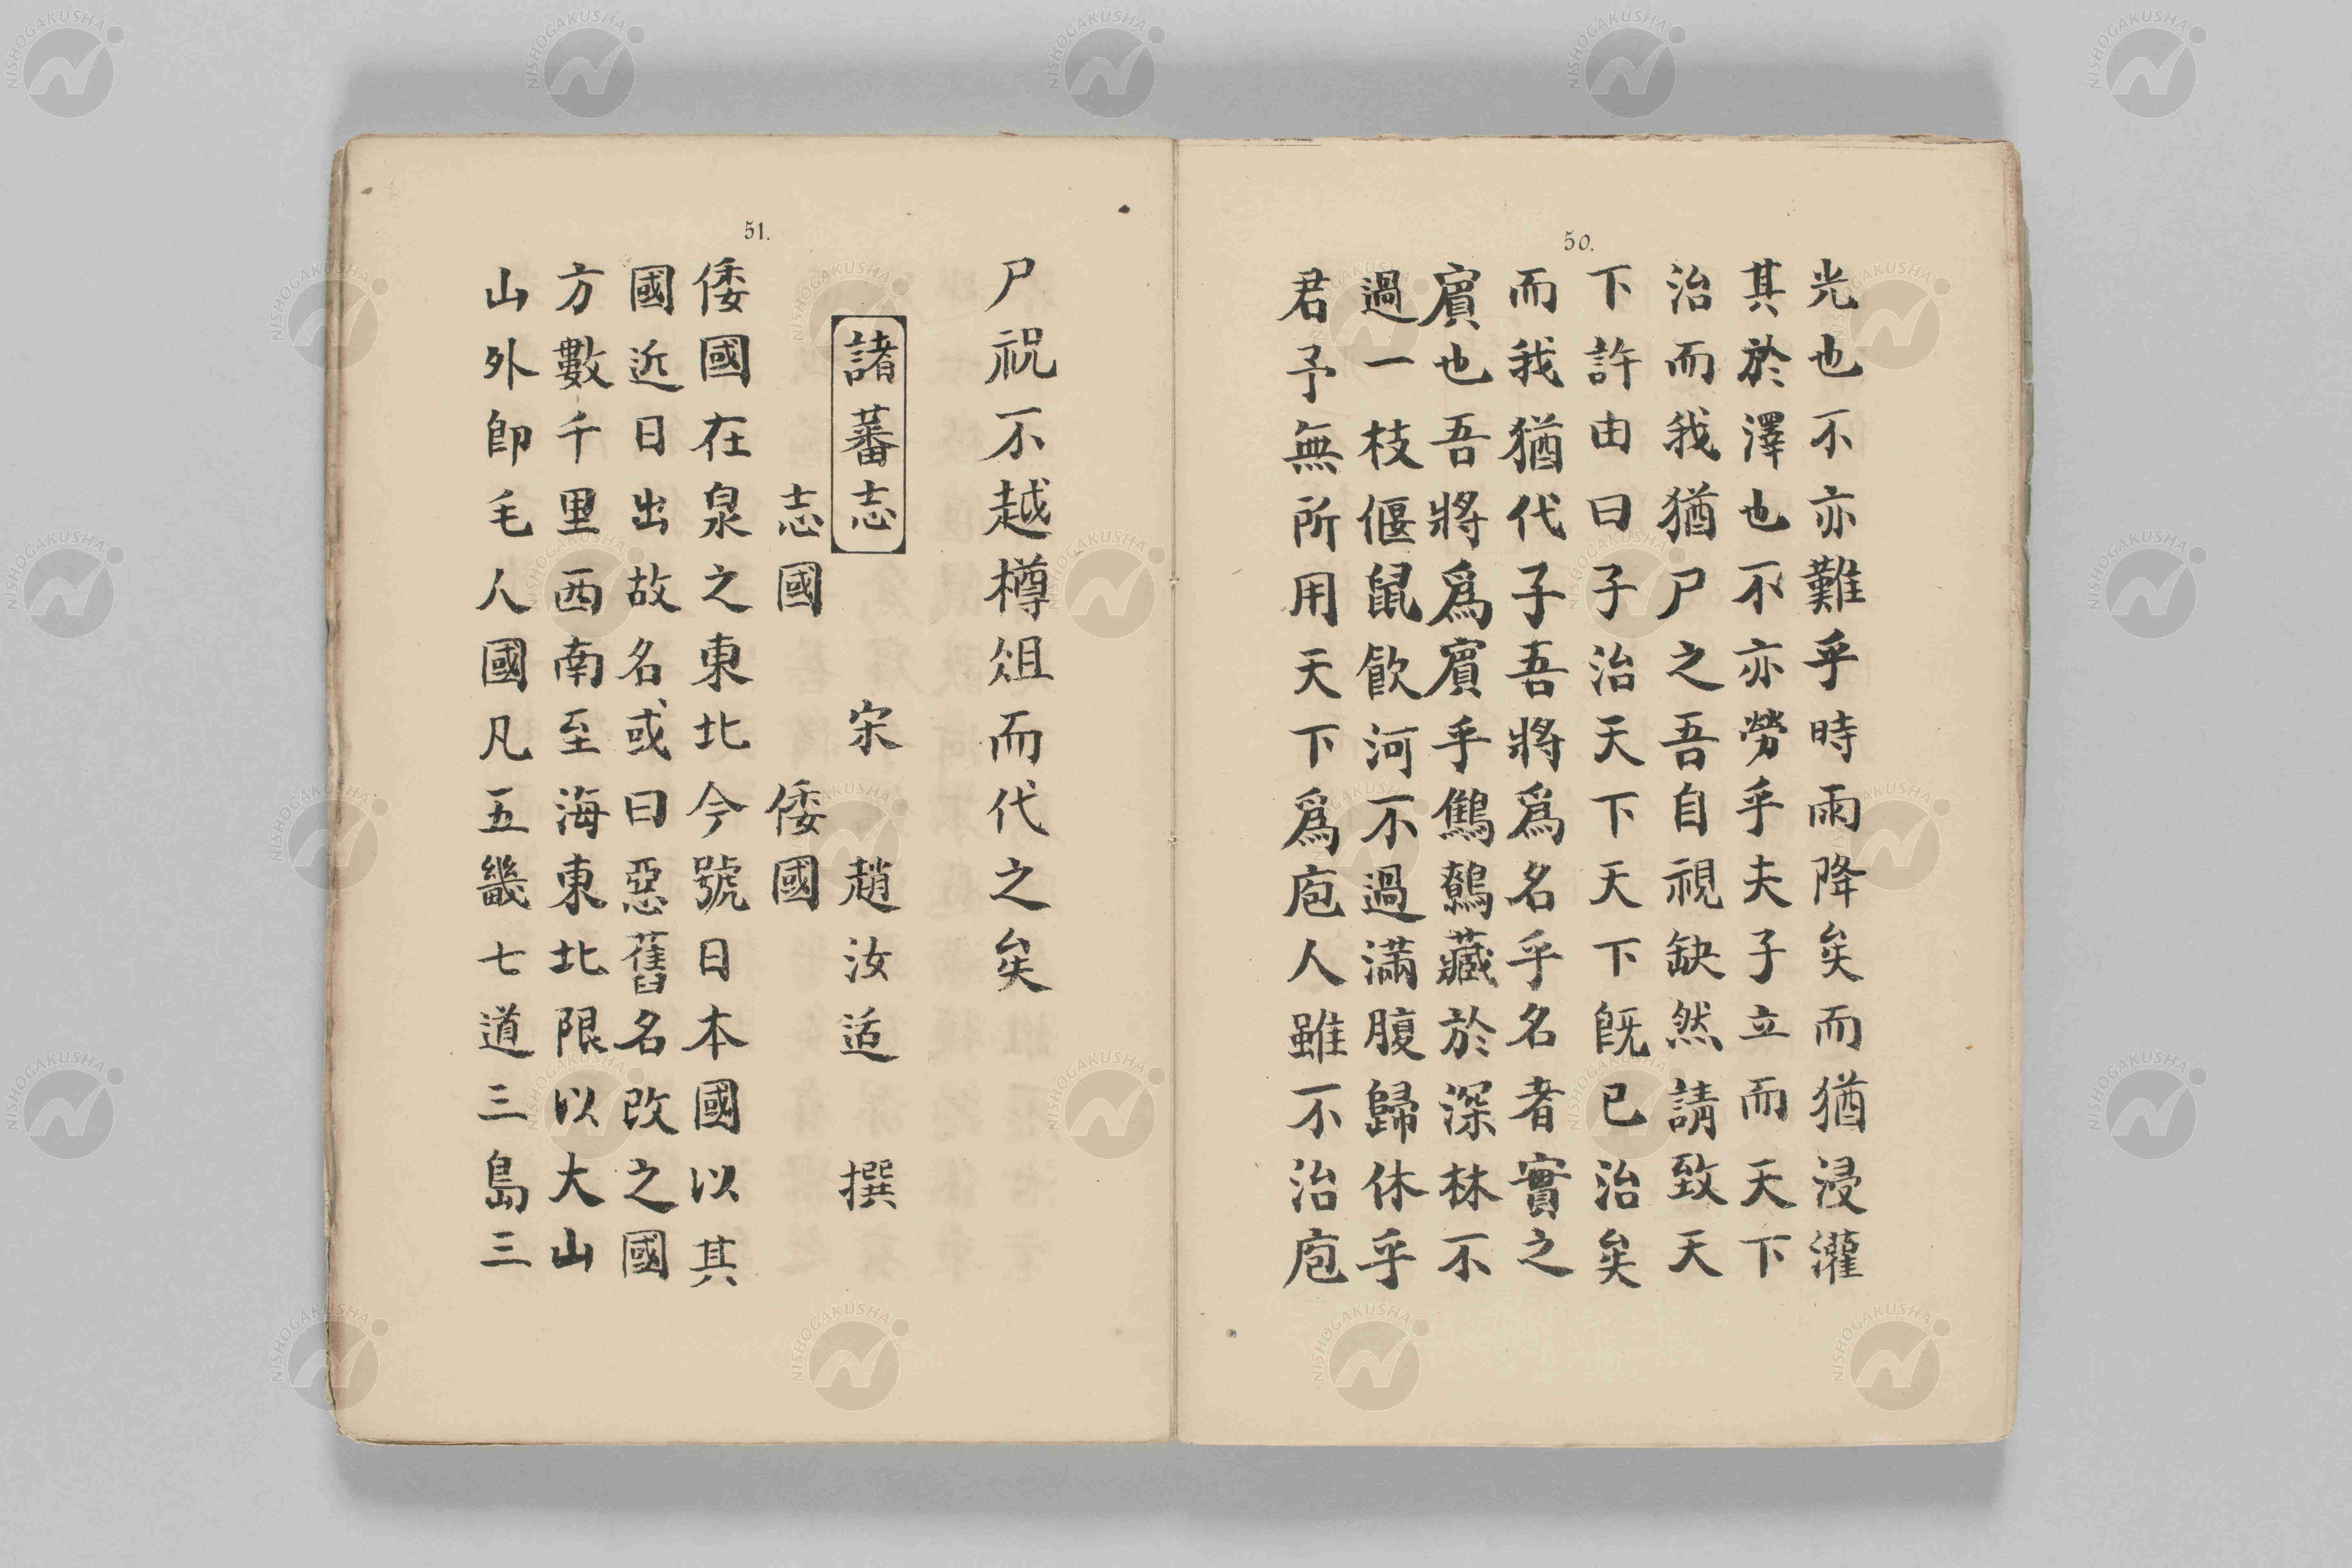 50.
光也不亦難乎時雨降矣而猶浸灌
其於澤也不亦勞乎夫子立而天下
治而我猶尸之吾自視缺然請致天
下許由曰子治天下天下既已治矣
而我猶代子吾將爲名乎名者實之
賓也吾將爲賓乎鷦鷯藏於深林不
過一枝偃鼠飮河不過滿腹歸休乎
君予無所用天下爲庖人雖不治庖
51.
尸祝不越樽俎而代之矣
諸蕃志 宋 趙汝适 撰
志國 倭國
倭國在泉之東北今號日本國以其
國近日出故名或曰惡舊名改之國
方數千里西南至海東北限以大山
山外卽毛人國凡五畿七道三島三
NISHOGAKUSHA